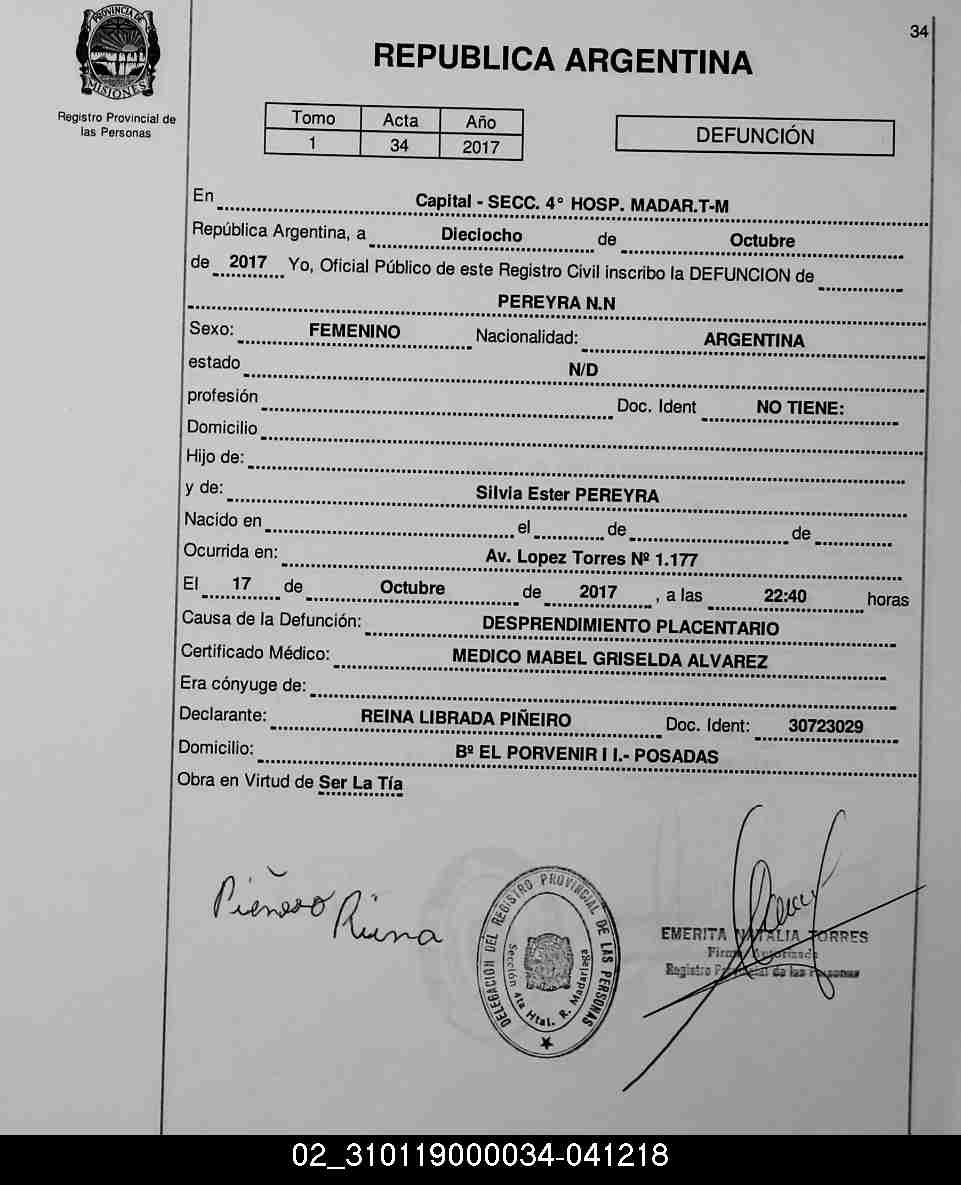 PROVINCIA DE
MISIONES
Registro Provincial de
las Personas
34
REPUBLICA ARGENTINA
Tomo Acta Año
1 34 2017
DEFUNCIÓN
En Capital - SECC. 4° HOSP. MADAR.T-M
República Argentina, a Dieciocho de Octubre
de 2017 Yo, Oficial Público de este Registro Civil inscribo la DEFUNCION de
PEREYRA N.N
Sexo: FEMENINO Nacionalidad: ARGENTINA
estado N/D
profesión Doc. Ident NO TIENE:
Domicilio
Hijo de:
y de: Silvia Ester PEREYRA
Nacido en el de de
Ocurrida en: Av. Lopez Torres Nº 1.177
El 17 de Octubre de 2017 , a las 22:40 horas
Causa de la Defunción: DESPRENDIMIENTO PLACENTARIO
Certificado Médico: MEDICO MABEL GRISELDA ALVAREZ
Era cónyuge de:
Declarante: REINA LIBRADA PIÑEIRO Doc. Ident: 30723029
Domicilio: Bº EL PORVENIR I I.- POSADAS
Obra en Virtud de Ser La Tía
DELEGACION DEL REGISTRO PROVINCIAL DE LAS PERSONAS
Sección 4ta Htal. R. Madariaga
EMERITA NATALIA TORRES
Firma Autorizada
Registro Provincial de las Personas
02_310119000034-041218